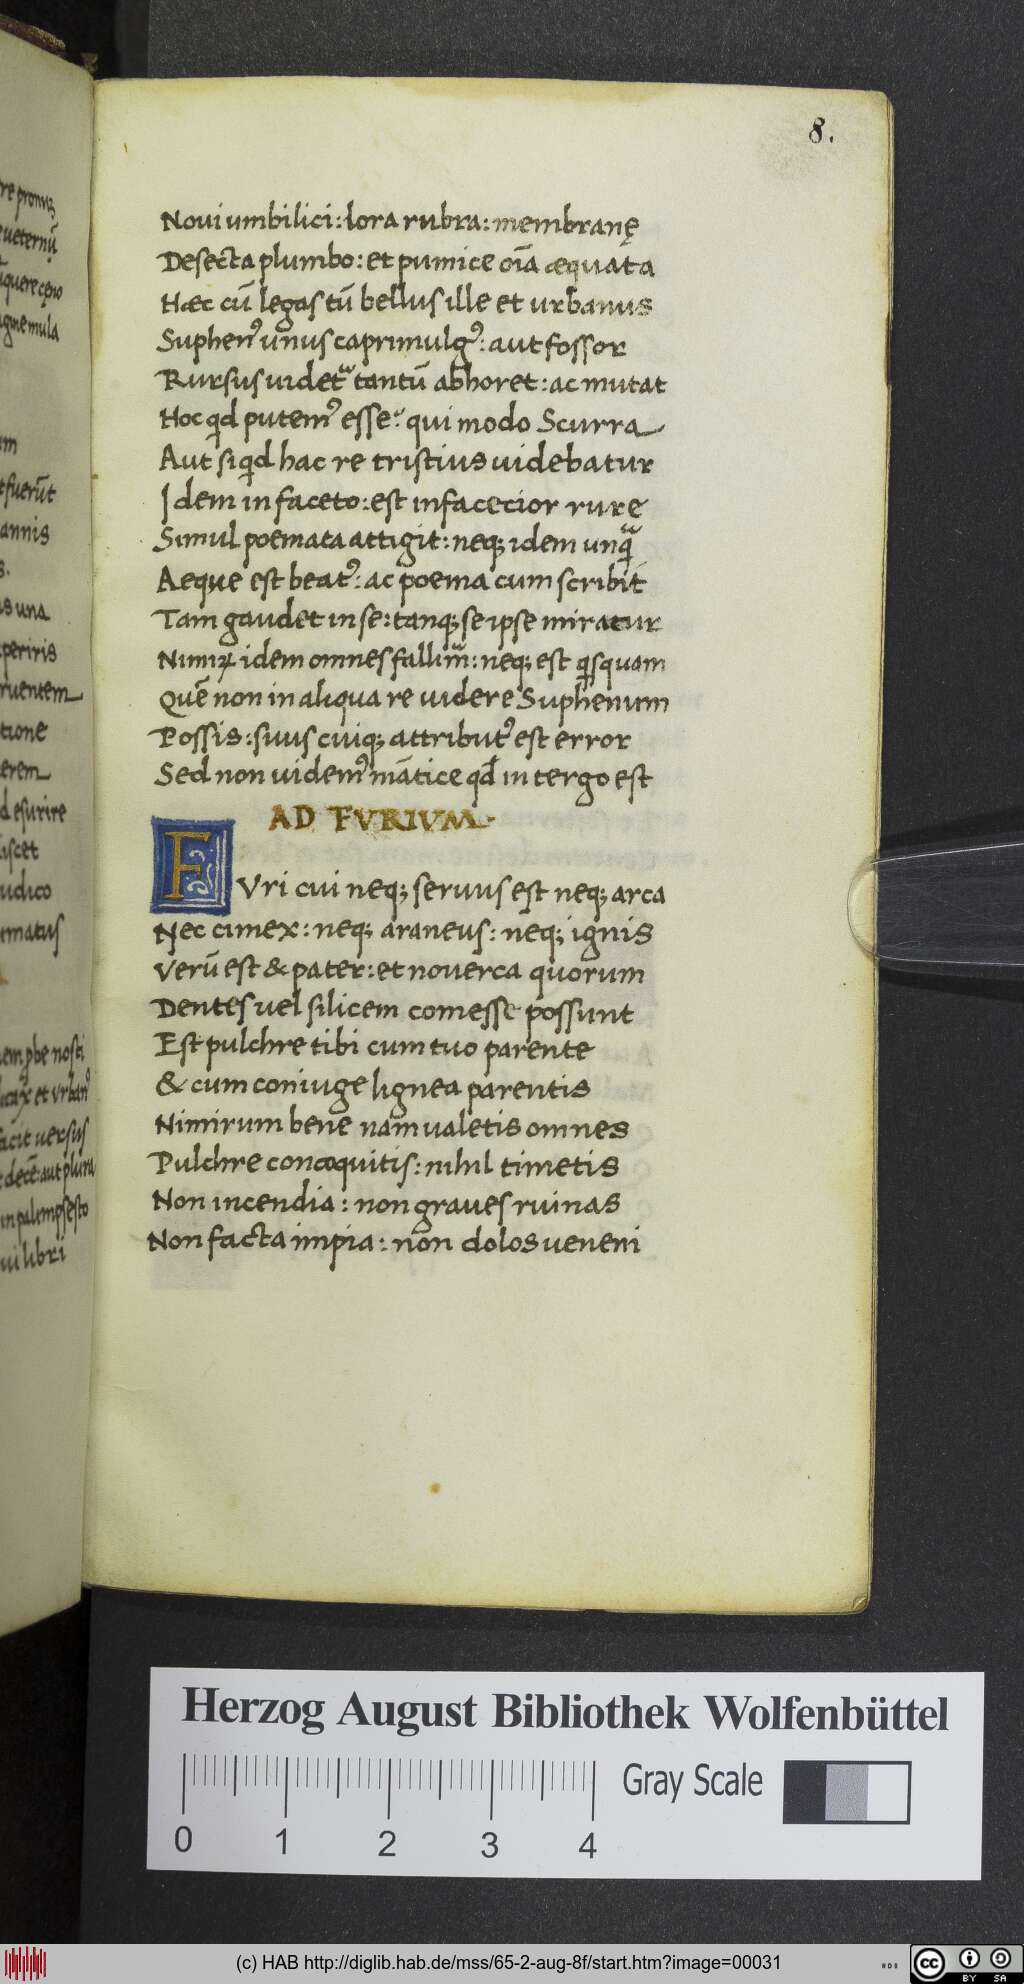 8.
Noui umbilici: lora rubra: membranę
Desecta plumbo: et pumice oīa æquata
Hæc cū legas tū bellus ille et urbanus
Suphenꝰ unus caprimulgꝰ: aut fossor
Rursus uidet tantū abhoret: ac mutat
Hoc qd putemꝰ esse? qui modo Scurra
Aut siqd hac re tristius uidebatur
Idem infaceto: est infacecior rure
Simul poemata attigit: neqꝫ idem unq̃
Aeque est beatꝰ: ac poema cum scribit
Tam gaudet in se: tanqꝫ se ipse miratur
Nimiꝝ idem omnes fallimᷓ: neqꝫ est qsquam
Quē non in aliqua re uidere Suphenum
Possis: suus cuiqꝫ attributꝰ est error
Sed non uidemꝰ mātice qd̄ in tergo est
AD FVRIVM.
FVri cui neqꝫ seruus est neqꝫ arca
Nec cimex: neqꝫ araneus: neqꝫ ignis
Verū est & pater: et nouerca quorum
Dentes uel silicem comesse possunt
Est pulchre tibi cum tuo parente
& cum coniuge lignea parentis
Nimirum bene nam ualetis omnes
Pulchre concoquitis: nihil timetis
Non incendia: non graues ruinas
Non facta impia: non dolos ueneni
Herzog August Bibliothek Wolfenbüttel
Gray Scale
0 1 2 3 4
(c) HAB http://diglib.hab.de/mss/65-2-aug-8f/start.htm?image=00031
cc BY SA